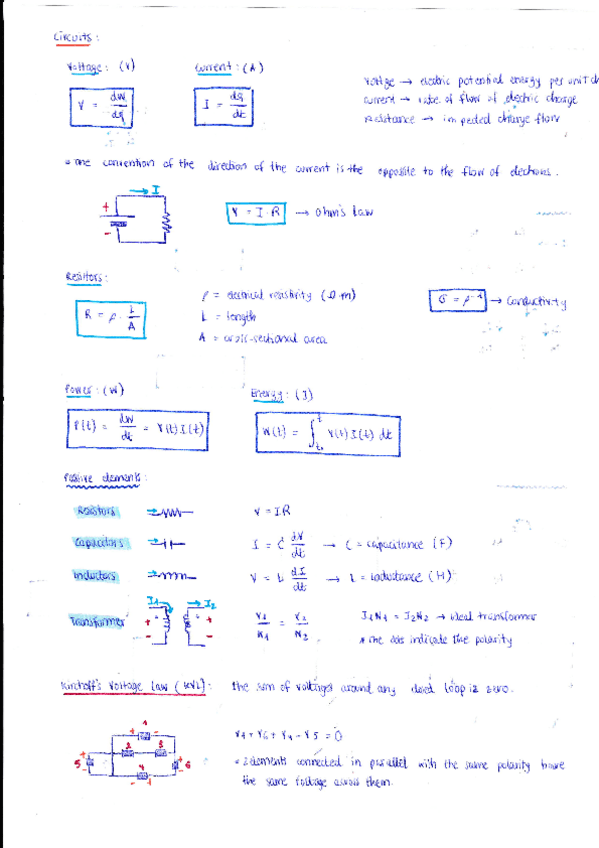 Circuits:
Voltage: (V) Current: (A)
V = dW/dq I = dq/dt
Voltage → electric potential energy per unit
current → rate of flow of electric charge
resistance → impeded charge flow
convention of the direction of the current is the opposite to the flow of electrons.
I
+
-
V = I·R → Ohm's Law
Resistors:
R = ρ · L/A
ρ = electrical resistivity (Ω·m)
L = length
A = cross-sectional area
→ Conductivity
Power: (W) Energy: (J)
P(t) = = V(t) I(t)
W(t) = ∫ V(t) I(t) dt
Passive elements:
Resistors V = IR
Capacitors I = C dV/dt → C = capacitance (F)
Inductors V = L dI/dt → L = inductance (H)
Transformer I1 I2 + - + - V1/N1 = V2/N2 I1N1 = I2N2 → ideal transformer
indicate the polarity
Voltage Law (KVL): the sum of voltages around any closed loop is zero.
5 6
= 0
elements connected in parallel with the same polarity have
the same voltage across them.